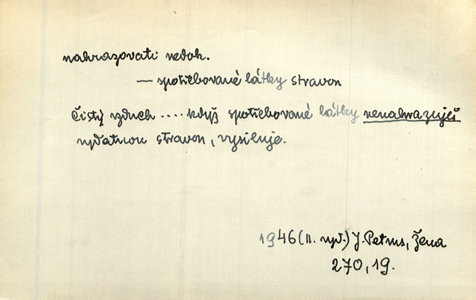 nahrazovati nedok.
— spotřebované látky stravou
Čistý vzduch .... když spotřebované látky nenahrazuješ
vydatnou stravou, vysiluje.
1946 (II. vyd.) J. Petrus, Žena
270, 19.